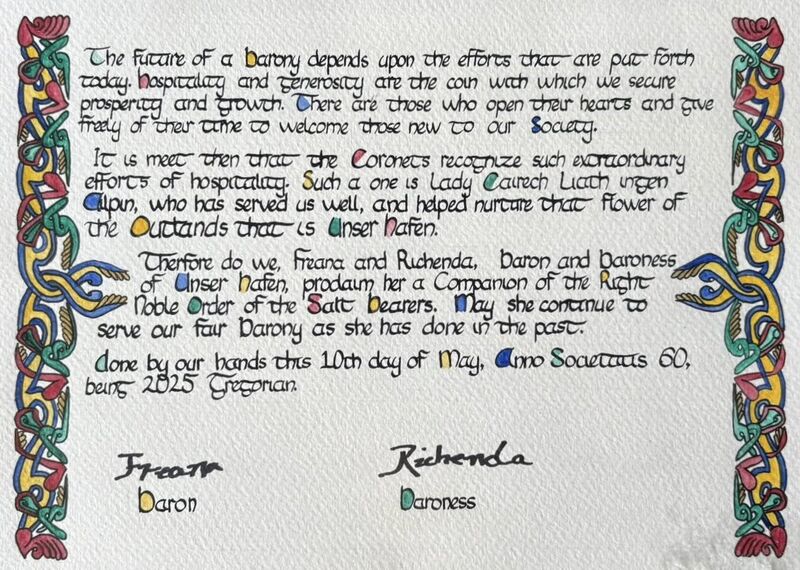 The future of a Barony depends upon the efforts that are put forth
today. Hospitality and generosity are the coin with which we secure
prosperity and growth. There are those who open their hearts and give
freely of their time to welcome those new to our Society.
It is meet then that the Coronets recognize such extraordinary
efforts of hospitality. Such a one is Lady Cairech Liath ingen
Alpin, who has served us well, and helped nurture that flower of
the Outlands that is Unser Hafen.
Therfore do we, Freana and Richenda, Baron and Baroness
of Unser Hafen, proclaim her a Companion of the Right
Noble Order of the Salt Bearers. May she continue to
serve our fair Barony as she has done in the past.
Done by our hands this 10th day of May, Anno Societatis 60,
being 2025 Gregorian.
Freana
Richenda
Baron
Baroness